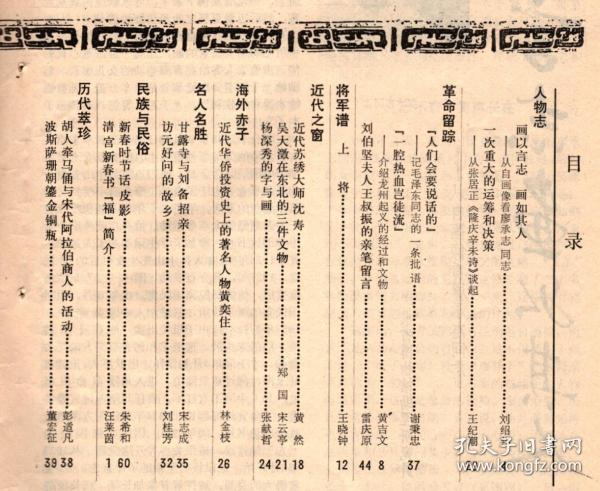 目录
人物志
画以言志 画如其人
——从自画像看廖承志同志……刘绍
一次重大的运筹和决策
——从张居正《隆庆辛未诗》谈起……王纪潮
革命留踪
『人们会要说话的』
——记毛泽东同志的一条批语……谢秉忠 37
『一腔热血岂徒流』
——介绍龙州起义的经过和文物……黄吉文 8
刘伯坚夫人王叔振的亲笔留言……雷庆原 44
将军谱
上将……王晓钟 12
近代之窗
近代苏绣大师沈寿……黄然 18
吴大澂在东北的三件文物……郑国 宋云亭 21
杨深秀的字与画……张献哲 24
海外赤子
近代华侨投资史上的著名人物黄奕住……林金枝 26
名人名胜
甘露寺与刘备招亲……宋志成 35
访元好问的故乡……刘桂芳 32
民族与民俗
新春时节话皮影……朱希和 60
清宫新春书『福』简介……汪莱茵 1
历代萃珍
胡人牵马俑与宋代阿拉伯商人的活动……彭适凡 38
波斯萨珊朝鎏金铜瓶……董宏征 39
孔夫子旧书网
www.kongfz.com